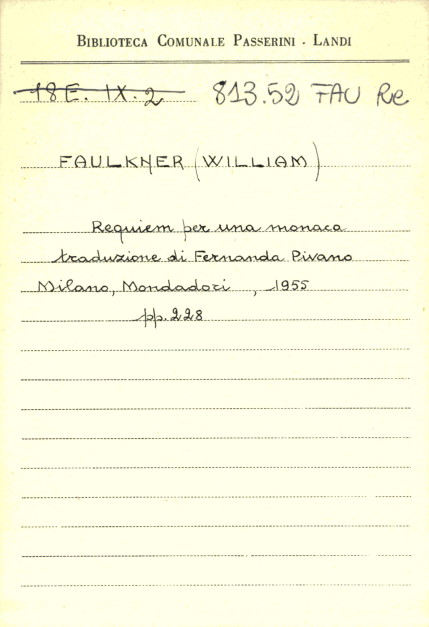 BIBLIOTECA COMUNALE PASSERINI - LANDI
18E. IX. 2 813.52 FAU Re
FAULKNER (WILLIAM)
Requiem per una monaca
traduzione di Fernanda Pivano
Milano, Mondadori , 1955
pp. 228